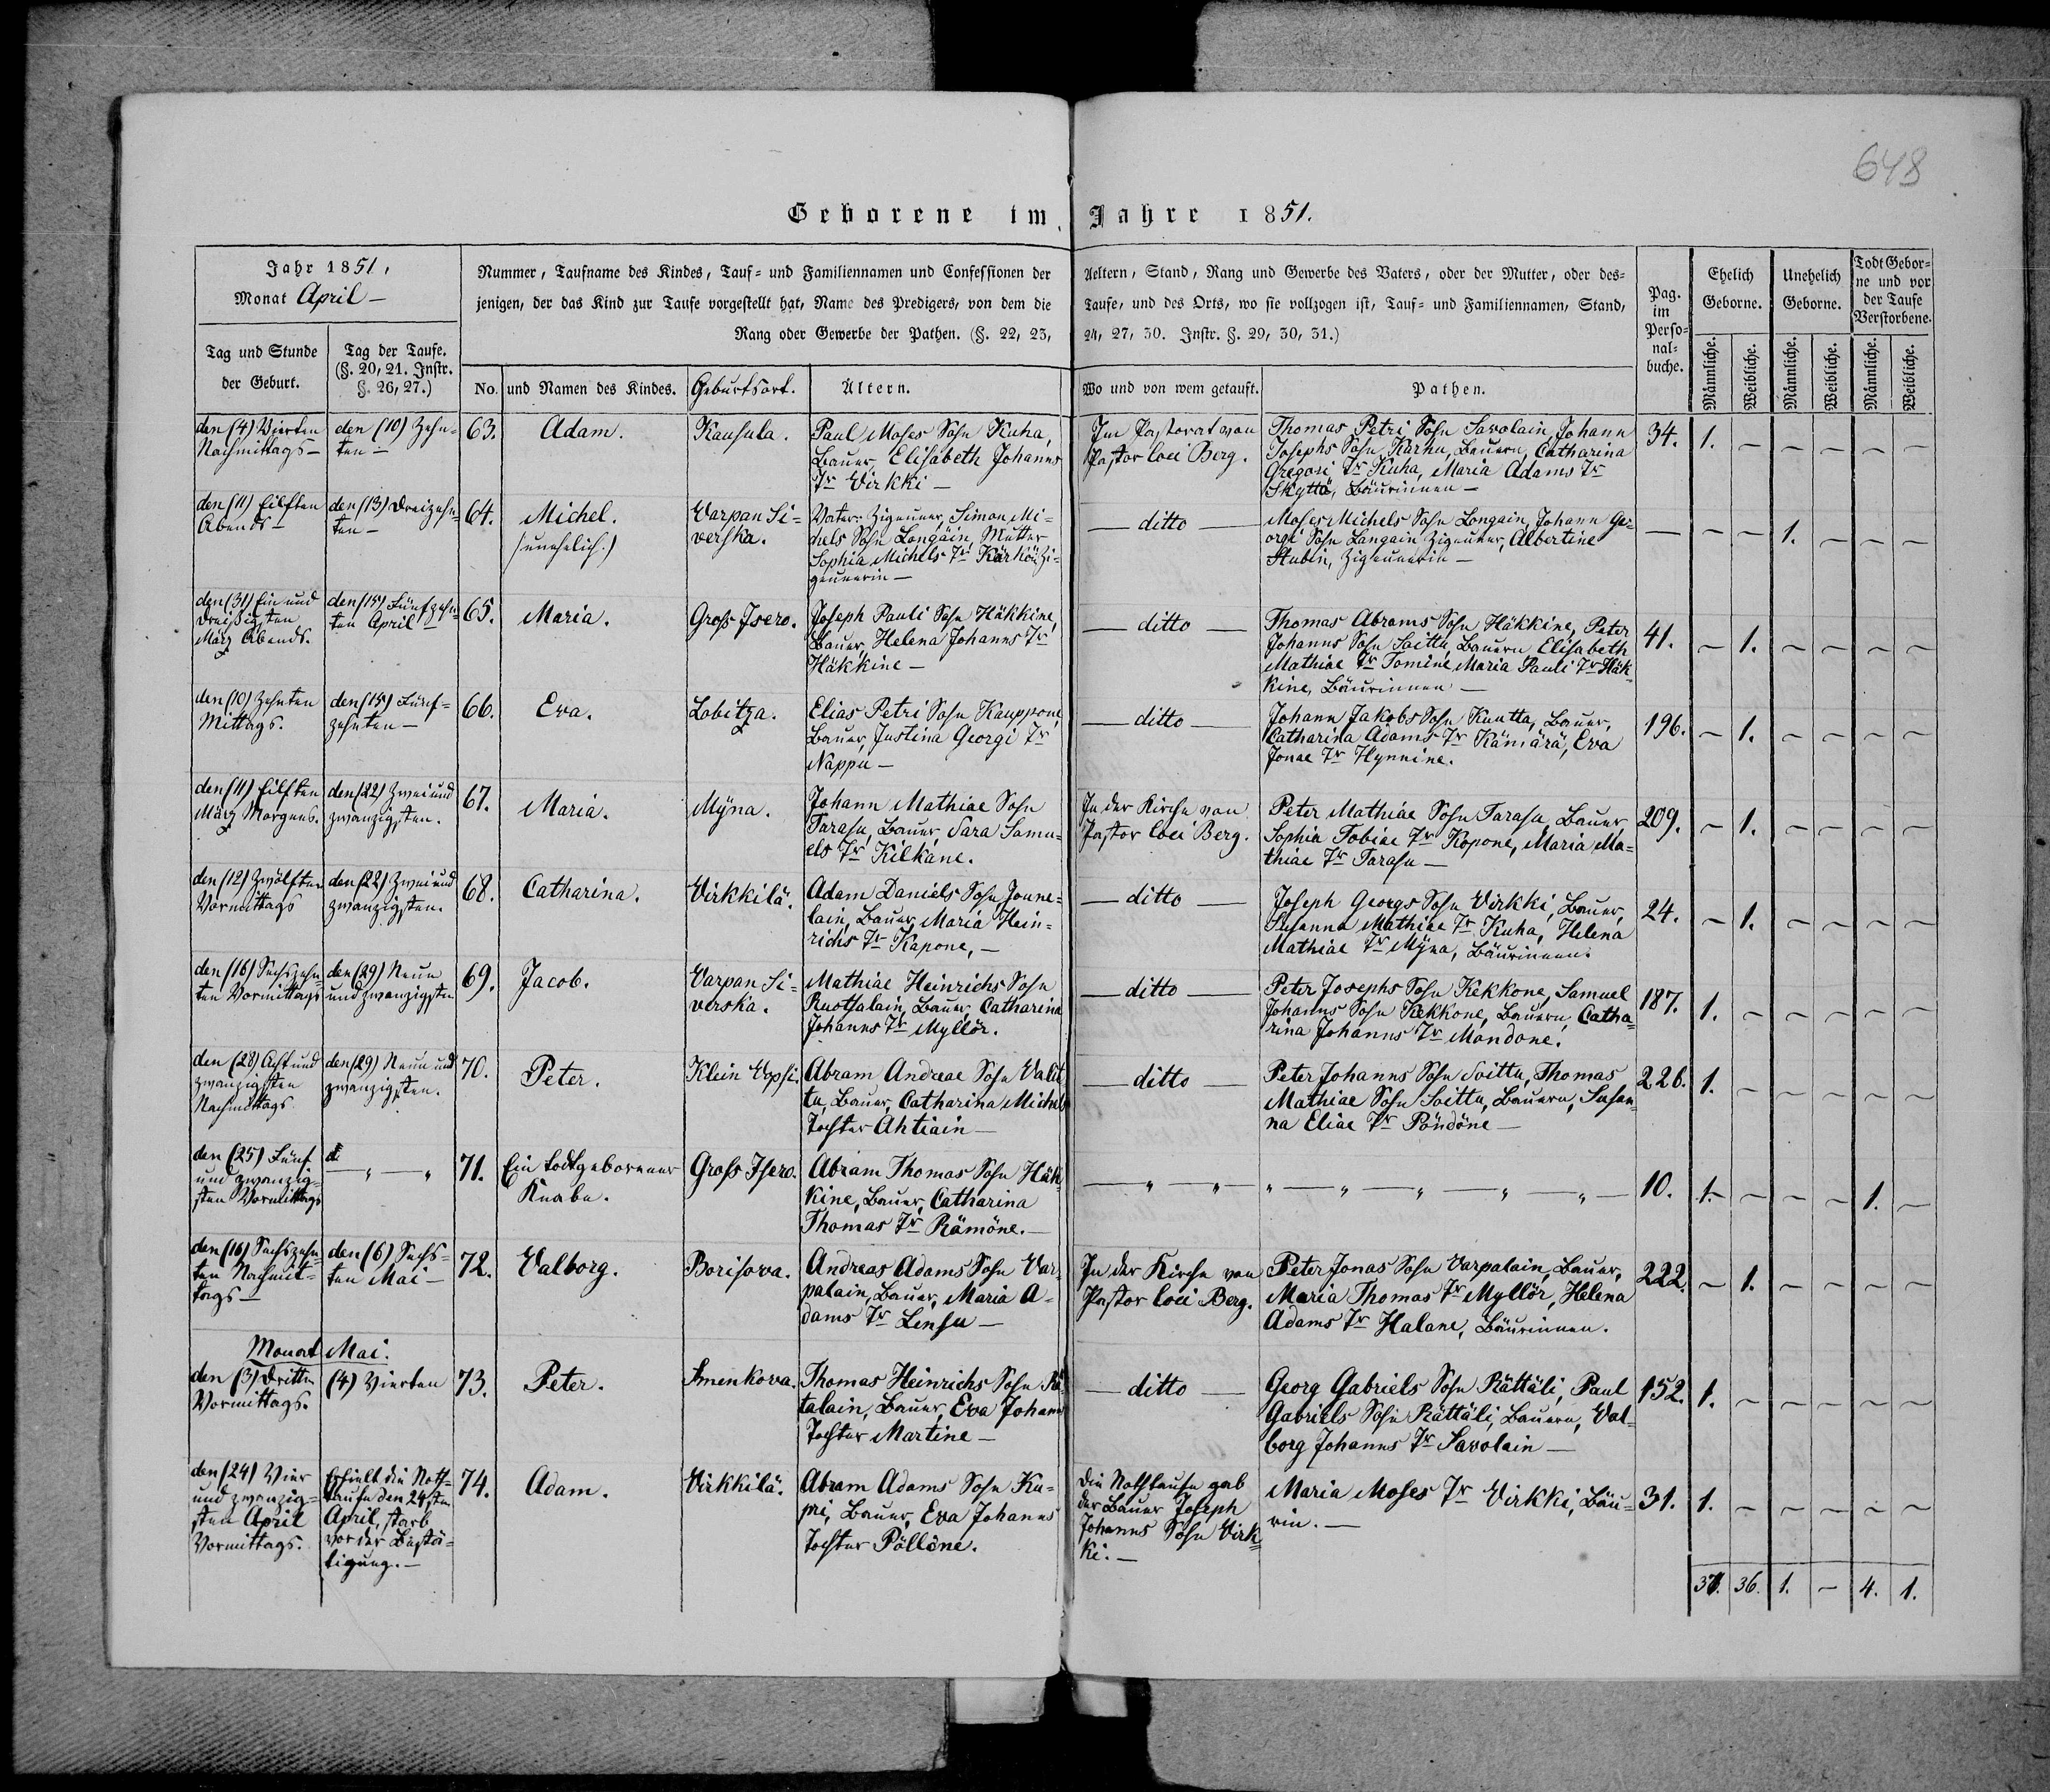 648
Geborene im Jahre 1851.
Jahr 1851,
Monat April —
Nummer, Taufname des Kindes, Tauf= und Familiennamen und Confessionen der
jenigen, der das Kind zur Taufe vorgestellt hat, Name des Predigers, von dem die
Rang oder Gewerbe der Pathen. (§. 22, 23,
Aeltern, Stand, Rang und Gewerbe des Vaters, oder der Mutter, oder des=
Taufe, und des Orts, wo sie vollzogen ist, Tauf= und Familiennamen, Stand,
24, 27, 30. Instr. §. 29, 30, 31.)
Pag.
im
Perso=
nal=
buche.
Ehelich
Geborne.
Unehelich
Geborne.
Todt Gebor=
ne und vor
der Taufe
Verstorbene.
Tag und Stunde
der Geburt.
Tag der Taufe.
(§. 20, 21. Instr.
§. 26, 27.)
No.
und Namen des Kindes.
Geburtsort.
Ältern.
Wo und von wem getauft.
Pathen.
Männliche.
Weibliche.
Männliche.
Weibliche.
Männliche.
Weibliche.
den (4) Vierten
Nachmittags —
den (10) Zehn=
ten —
63.
Adam.
Kausula.
Paul Moses Sohn Kuha,
Bauer, Elisabeth Johanns
Tr Virkki —
Im Pastorat von
Pastor loci Berg.
Thomas Petri Sohn Savolain, Johann
Josephs Sohn Karhu, Bauern, Catharina
Gregori Tr Kuha, Maria Adams Tr
Skyttä, Bäurinnen —
34.
1. — — — — —
den (11) Eilften
Abends —
den (13) Dreizehn=
ten —
64.
Michel.
(unehelich.)
Varpan Si=
verska.
Vater: Zigeuner, Simon Mi=
chels Sohn Longain, Mutter
Sophia Michels Tr Kärköi Zi=
geunerin —
— ditto —
Moses Michels Sohn Longain, Johann Ge=
orgi Sohn Langain Zigeuner, Albertine
Stubin, Zigeunerin —
— — — 1. — — —
den (31) Ein und
dreißigsten
März Abends.
den (15) Fünfzehn=
ten April —
65.
Maria.
Groß Isero.
Joseph Pauli Sohn Häkkine,
Bauer, Helena Johanns Tr
Häkkine —
— ditto —
Thomas Abrams Sohn Häkkine, Peter
Johanns Sohn Soittu, Bauern Elisabeth
Mathiae Tr Tomine Maria Pauli Tr Häk=
kine, Bäurinnen —
41.
— 1. — — — —
den (10) Zehnten
Mittags.
den (15) Fünf=
zehnten —
66.
Eva.
Lobitza.
Elias Petri Sohn Kauppone,
Bauer, Justina Georgi Tr
Nappu —
— ditto —
Johann Jakobs Sohn Kuutta, Bauer,
Catharina Adams Tr Kämärä, Eva
Jonae Tr Hynnine.
196.
— 1. — — — —
den (11) Eilften
März Morgens.
den (22) Zwei und
zwanzigsten.
67.
Maria.
Myna.
Johann Mathiae Sohn
Tarasu, Bauer, Sara Samu=
els Tr Kilkäne.
In der Kirche von
Pastor loci Berg.
Peter Mathiae Sohn Tarasu Bauer
Sophia Tobiae Tr Kopone, Maria Ma=
thiae Tr Tarasu —
209.
— 1. — — — —
den (12) Zwölften
Vormittags
den (22) Zwei und
zwanzigsten.
68.
Catharina.
Virkkilä.
Adam Daniels Sohn Joune=
lain, Bauer, Maria Hein=
richs Tr Kapone, —
— ditto —
Joseph Georgs Sohn Virkki, Bauer,
Susanna Mathiae Tr Kuha, Helena
Mathiae Tr Myna, Bäurinnen.
24.
— 1. — — — —
den (16) Sechszehn=
ten Vormittags
den (29) Neun
und zwanzigsten
69.
Jacob.
Varpan Si=
verska.
Mathiae Heinrichs Sohn
Ruotsalain, Bauer, Catharina
Johanns Tr Myllör.
— ditto —
Peter Josephs Sohn Kekkone, Samuel
Johanns Sohn Kekkone, Bauern, Catha=
rina Johanns Tr Mondone.
187.
1. — — — — —
den (28) Acht und
zwanzigsten
Nachmittags
den (29) Neun und
zwanzigsten.
70.
Peter.
Klein Vopsi.
Abram Andreae Sohn Valit
tu, Bauer, Catharina Michels
Tochter Ahtiain —
— ditto —
Peter Johanns Sohn Soittu, Thomas
Mathiae Sohn Soittu, Bauern, Susan=
na Eliae Tr Pöndöne —
226.
1. — — — — —
den (25) Fünf
und zwanzig=
sten Vormittags
d.
— „ — „
71.
Ein todtgeborener
Knabe.
Groß Isero.
Abram Thomas Sohn Häk=
kine, Bauer, Catharina
Thomas Tr Rämöne. —
— „ — „ — „ — „ — „ — „ — „ —
10.
1. — — — 1. —
den (16) Sechszehn=
ten Nachmit=
tags —
den (6) Sechs=
ten Mai —
72.
Valborg.
Borisova.
Andreas Adams Sohn Var=
palain, Bauer, Maria A=
dams Tr Lensu —
In der Kirche von
Pastor loci Berg.
Peter Jonas Sohn Varpalain, Bauer,
Maria Thomas Tr Myllör, Helena
Adams Tr Halane, Bäurinnen.
222.
— 1. — — — —
Monat Mai.
den (3) Dritten
Vormittags.
(4) Vierten
73.
Peter.
Smenkova.
Thomas Heinrichs Sohn
talain, Bauer, Eva Johanns
Tochter Martine —
— ditto —
Georg Gabriels Sohn Rättäli, Paul
Gabriels Sohn Rättäli, Bauern, Val=
borg Johanns Tr Savolain —
152.
1. — — — — —
den (24) Vier
und zwanzig=
sten April
Vormittags.
Erhielt die Noth=
taufe den 24sten
April, starb
vor der Bestä=
tigung. —
74.
Adam.
Virkkilä.
Abram Adams Sohn Ku=
pri, Bauer, Eva Johanns
Tochter Pöllöne.
Die Nothtaufe gab
der Bauer Joseph
Johanns Sohn Virk=
ki. —
Maria Moses Tr Virkki, Bäu=
rin. —
31.
1. — — — — —
37. 36. 1. — 4. 1.